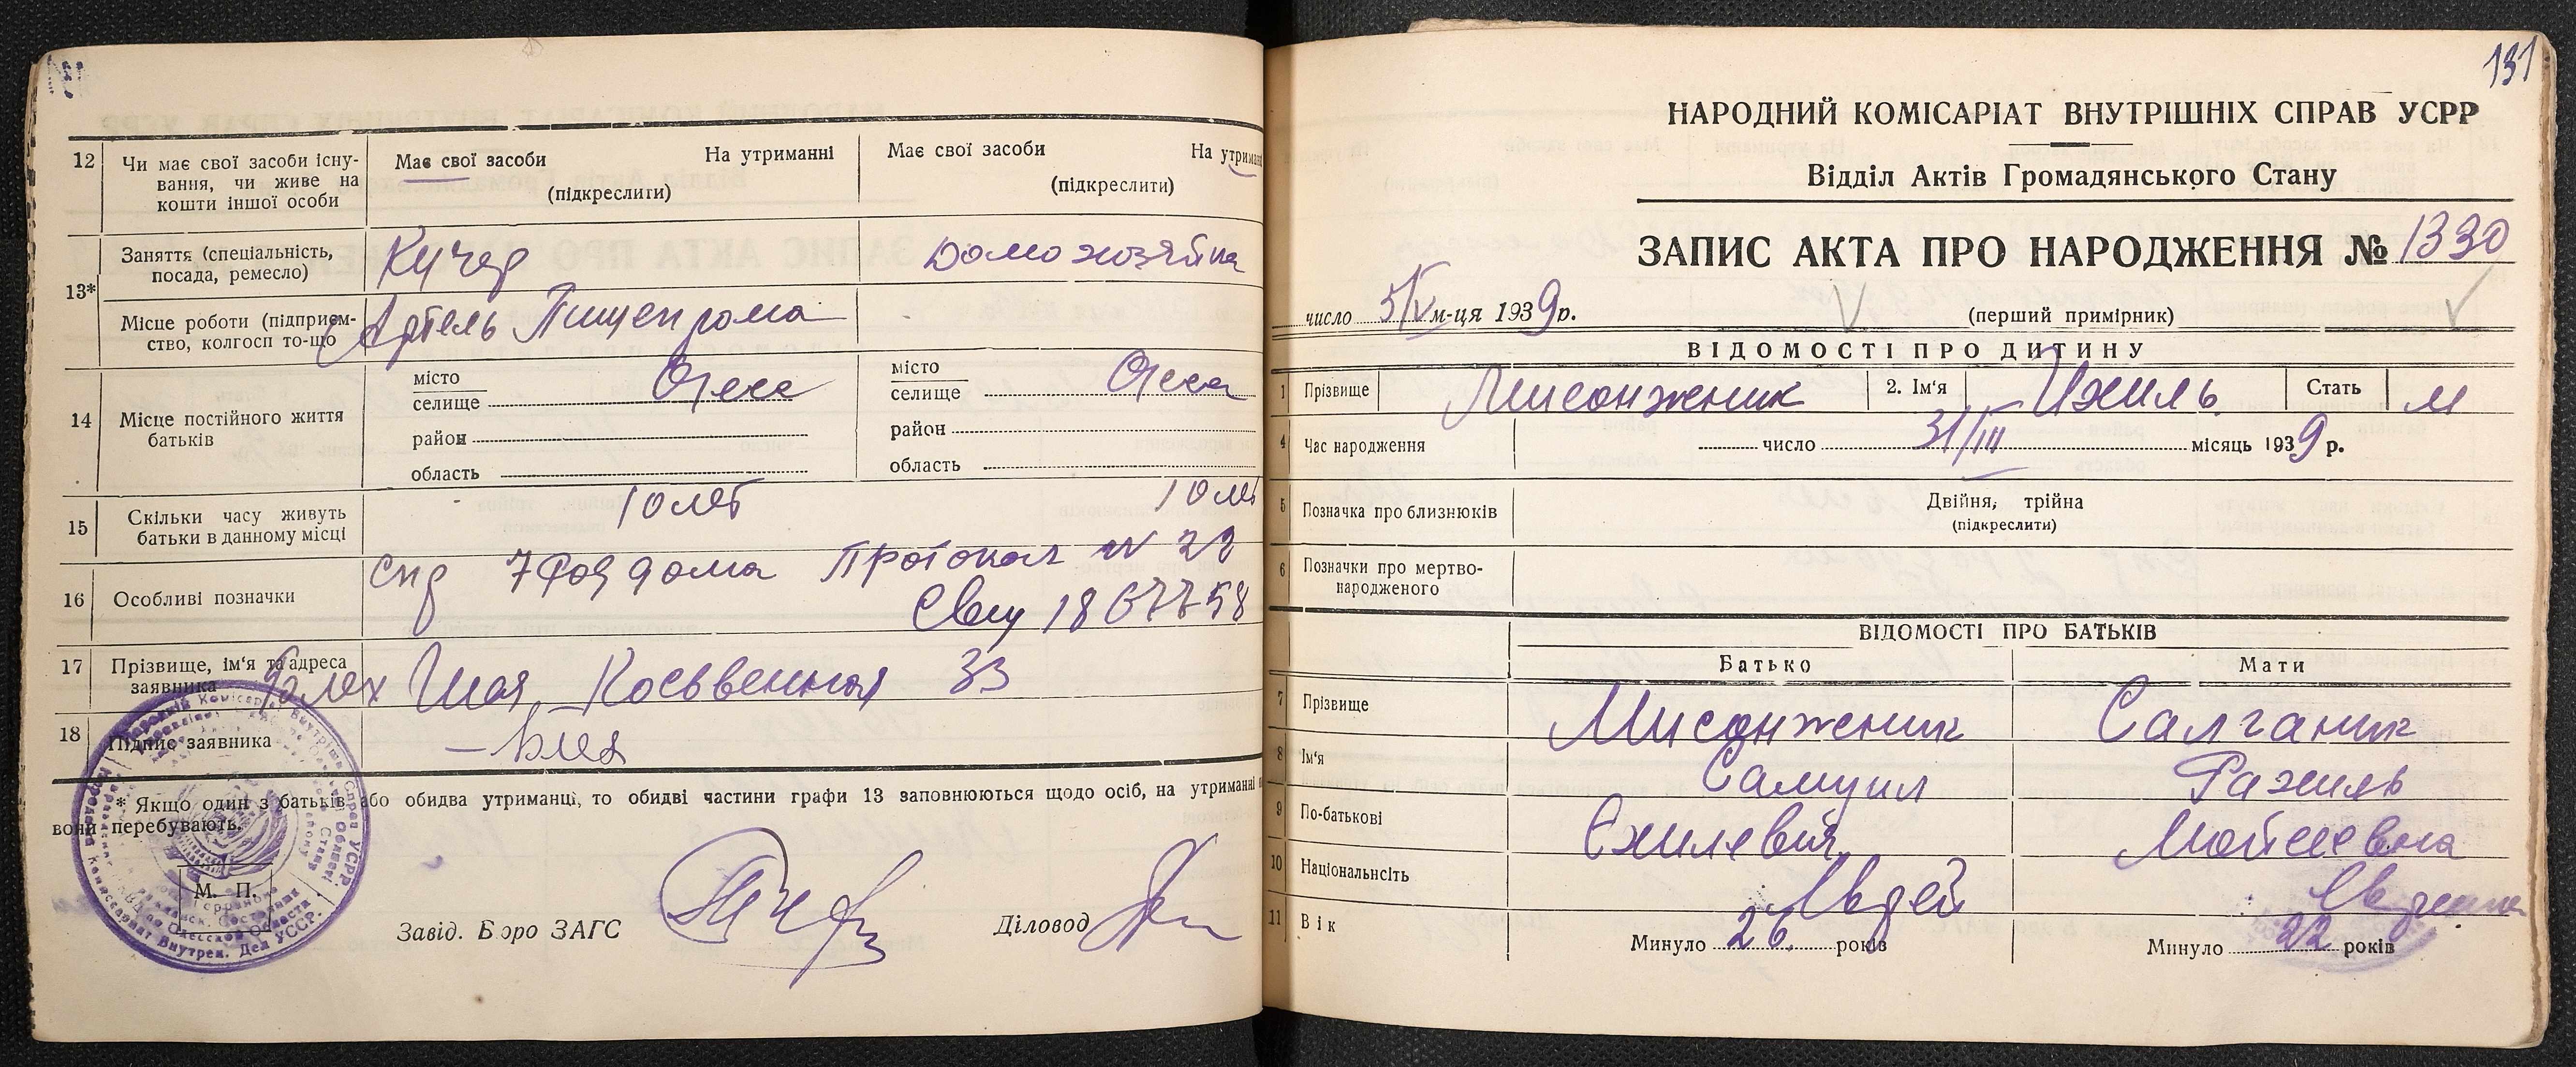 12 Чи має свої засоби існу-
вання, чи живе на
кошти іншої особи
Має свої засоби На утриманні
(підкреслити)
Має свої засоби На утриманн
(підкреслити)
13*
Заняття (спеціальність,
посада, ремесло)
Кучер
Домохозяйка
Місце роботи (підприєм-
ство, колгосп то-що
Артель Пищепрома
14 Місце постійного життя
батьків
місто
селище Одесса
район
область
місто
селище Одесса
район
область
15 Скільки часу живуть
батьки в данному місці
10 лет
10 лет
16 Особливі позначки
спр 7 род дома Протокол № 22
Свид 1867758
17 Прізвище, ім'я та адреса
заявника
Шая Косвенная 33
18 Підпис заявника
* Якщо один з батьків, або обидва утриманці, то обидві частини графи 13 заповнюються щодо осіб, на утриманні
вони перебувають.
М. П.
Завід. Бюро ЗАГС
Діловод
131
НАРОДНИЙ КОМІСАРІАТ ВНУТРІШНІХ СПРАВ УСРР
Відділ Актів Громадянського Стану
ЗАПИС АКТА ПРО НАРОДЖЕННЯ № 1330
число 5/IV м-ця 1939 р.
(перший примірник)
ВІДОМОСТІ ПРО ДИТИНУ
1 Прізвище Мисонжник 2. Ім'я Ихиль Стать м
4 Час народження число 31/III місяць 1939 р.
5 Позначка про близнюків Двійня, трійна
(підкреслити)
6 Позначки про мертво-
народженого
ВІДОМОСТІ ПРО БАТЬКІВ
Батько Мати
7 Прізвище Мисонжник Салганик
8 Ім'я Самуил Рахиль
9 По-батькові Ехилевич Мойсеевна
10 Національність Еврей Еврейка
11 Вік Минуло 26 років Минуло 22 років